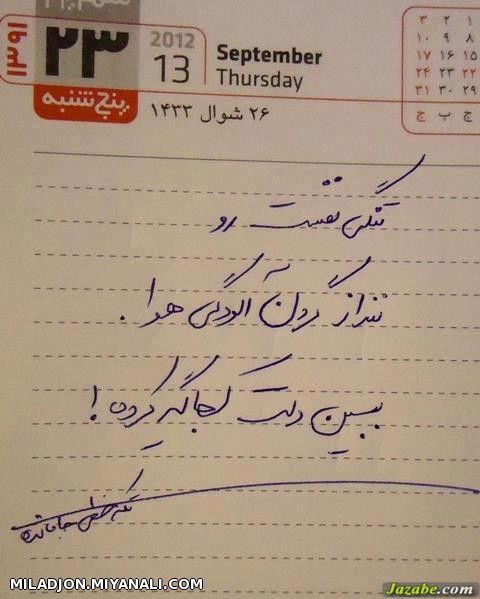 ۱۳۹۱
۲۳
پنج‌شنبه
2012
13
September
Thursday
۲۶ شوال ۱۴۳۳
۳ ۲ ۱
۱۰ ۹ ۸
۱۷ ۱۶ ۱۵
۲۴ ۲۳ ۲۲
۳۱ ۳۰ ۲۹
ج پ چ
تنگی نفست رو
ننداز گردن آلودگی هوا.
ببین دلت کجا گیر کرده!
MILADJON.MIYANALI.COM
Jazabe.com